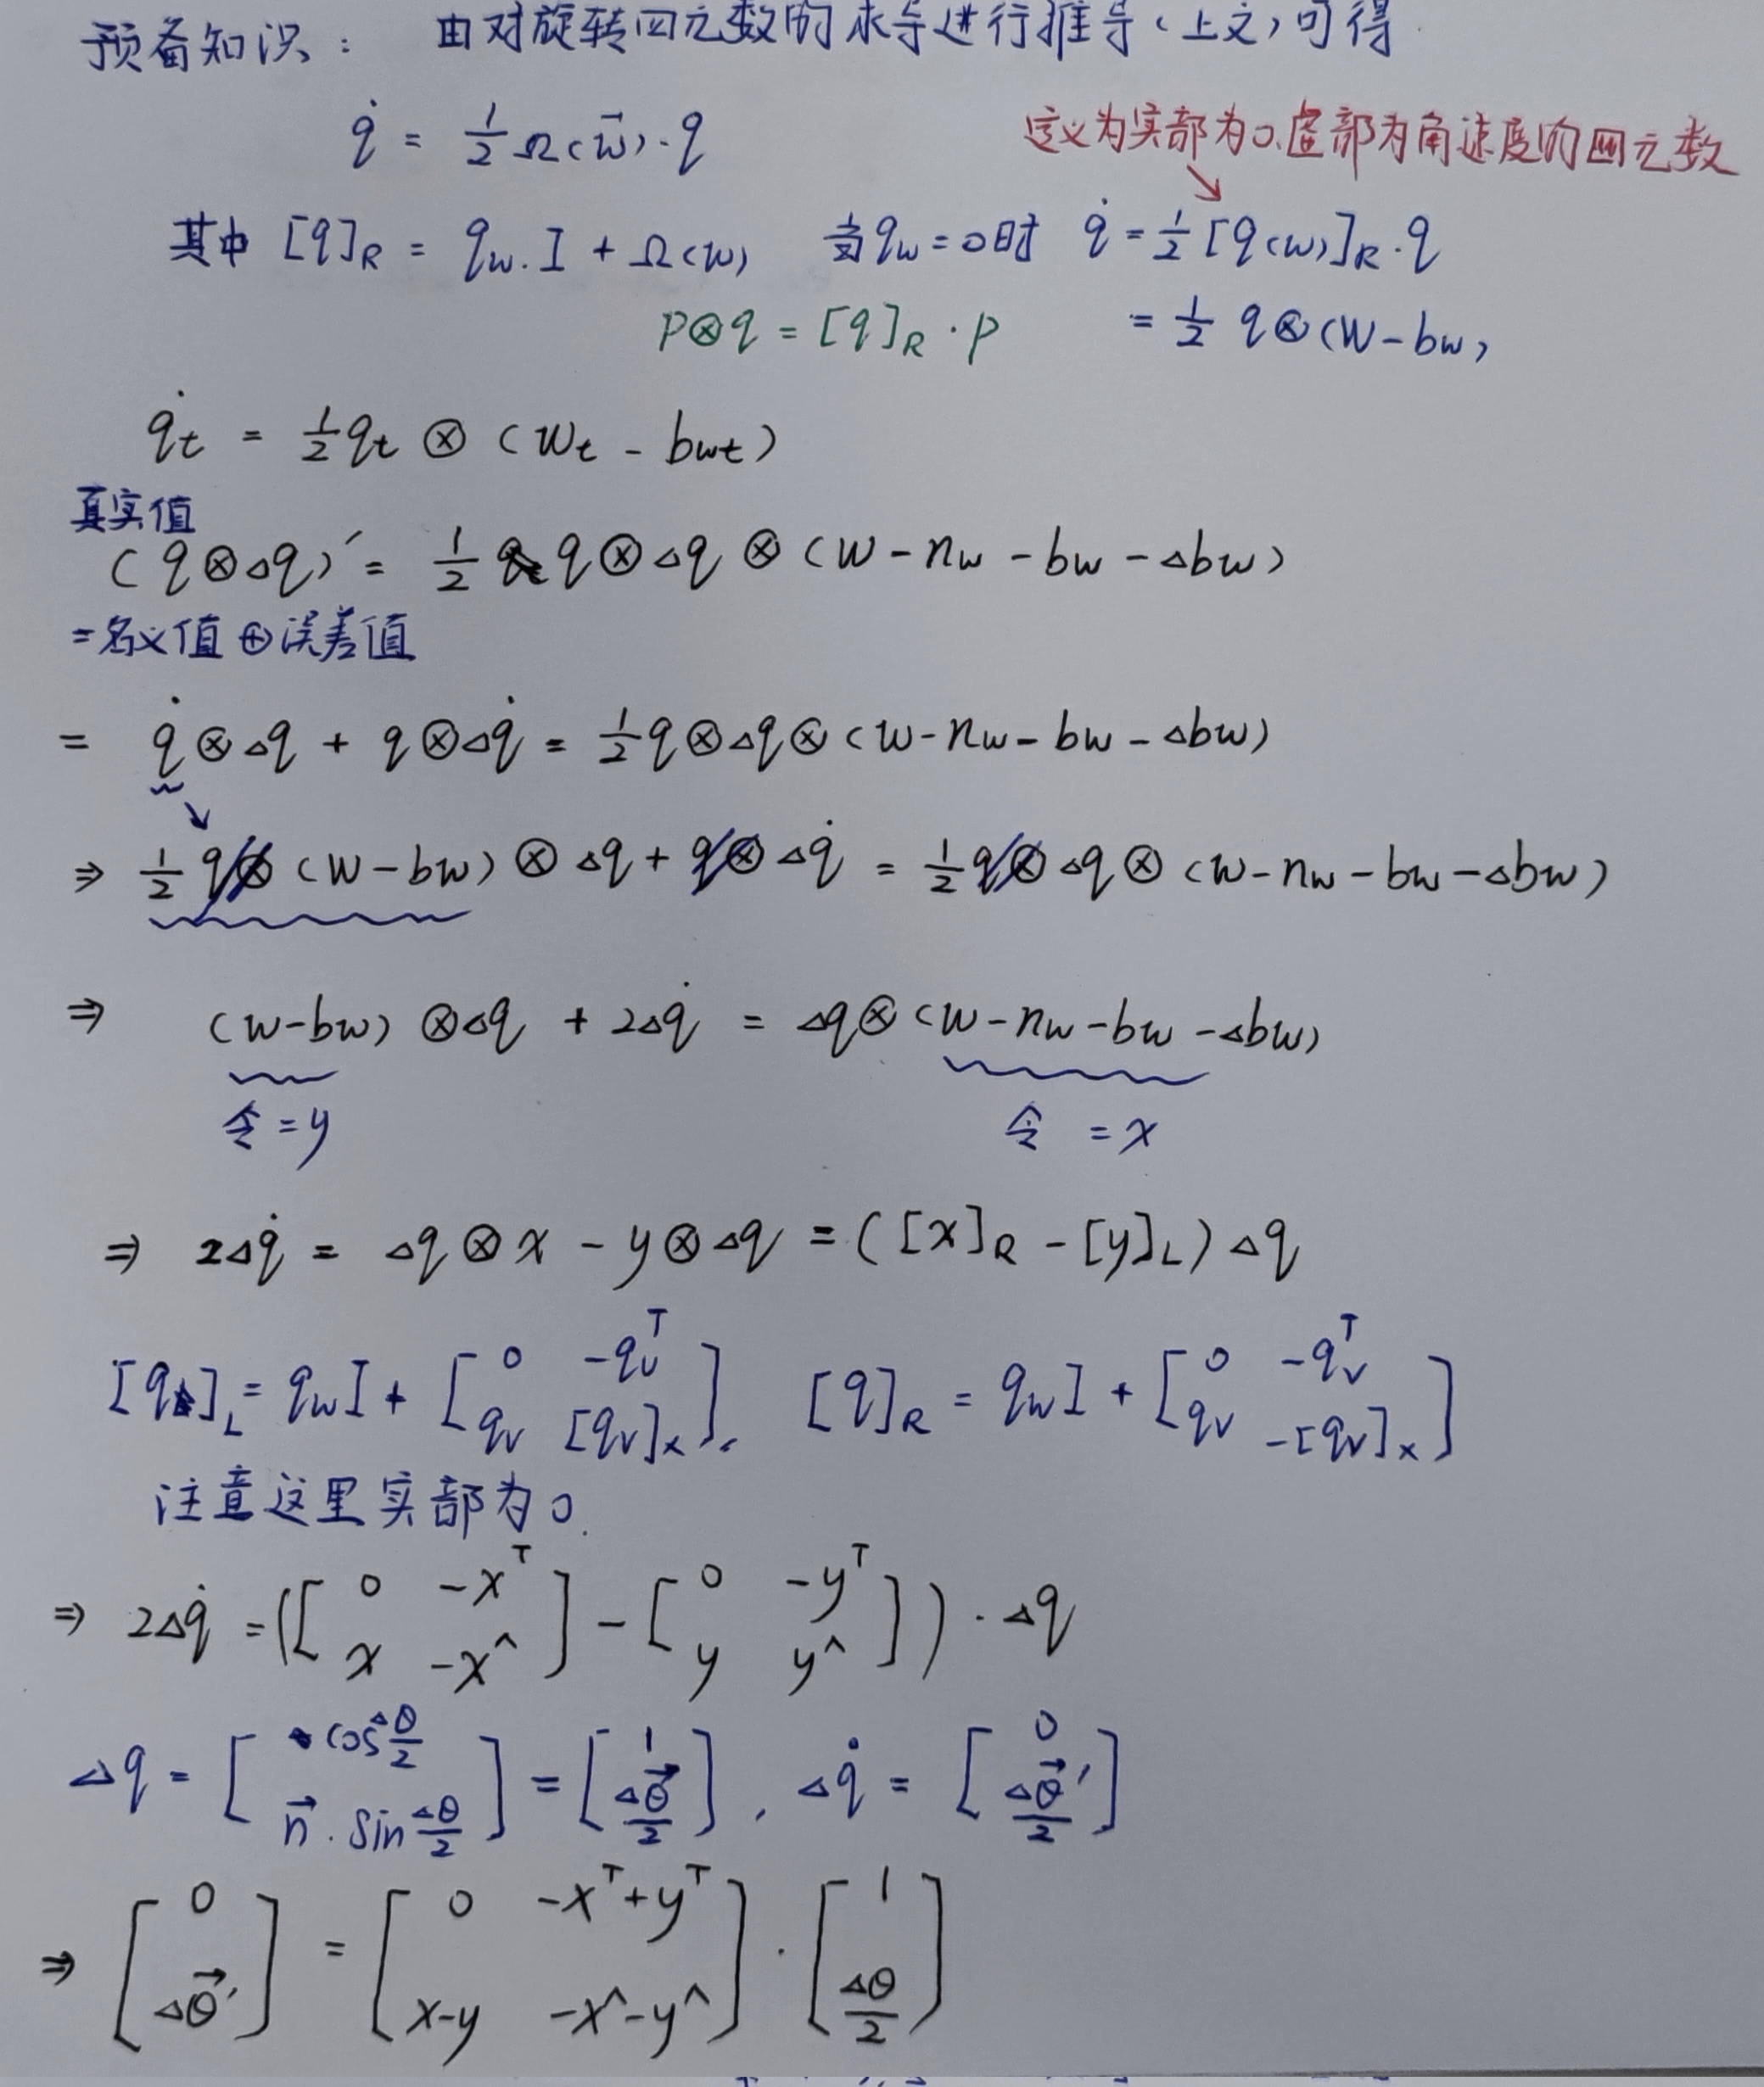 预备知识： 由对旋转四元数的求导进行推导（上文）可得
q̇ = 1/2 Ω(w⃗)·q
定义为实部为0.虚部为角速度的四元数
↘
其中 [q]_R = q_w·I + Ω(w) 当q_w=0时 q̇ = 1/2 [q(w)]_R·q
p⊗q = [q]_R·p = 1/2 q⊗(w-b_w)
q̇_t = 1/2 q_t ⊗ (w_t - b_wt)
真实值
(q⊗Δq)′ = 1/2 q⊗Δq⊗(w-n_w-b_w-Δb_w)
=名义值⊕误差值
= q̇⊗Δq + q⊗Δq̇ = 1/2 q⊗Δq⊗(w-n_w-b_w-Δb_w)
⇒ 1/2 q⊗(w-b_w)⊗Δq + q⊗Δq̇ = 1/2 q⊗Δq⊗(w-n_w-b_w-Δb_w)
⇒ (w-b_w)⊗Δq + 2Δq̇ = Δq⊗(w-n_w-b_w-Δb_w)
令=y 令 =x
⇒ 2Δq̇ = Δq⊗x - y⊗Δq = ([x]_R - [y]_L)Δq
[q]_L = q_w I + [0 -q_v^T; q_v [q_v]_×], [q]_R = q_w I + [0 -q_v^T; q_v -[q_v]_×]
注意这里实部为0.
⇒ 2Δq̇ = ([0 -x^T; x -x^] - [0 -y^T; y y^])·Δq
Δq = [cos Δθ/2; n⃗·sin Δθ/2] = [1; Δθ⃗/2], Δq̇ = [0; Δθ⃗′/2]
⇒ [0; Δθ⃗′] = [0 -x^T+y^T; x-y -x^-y^]·[1; Δθ/2]